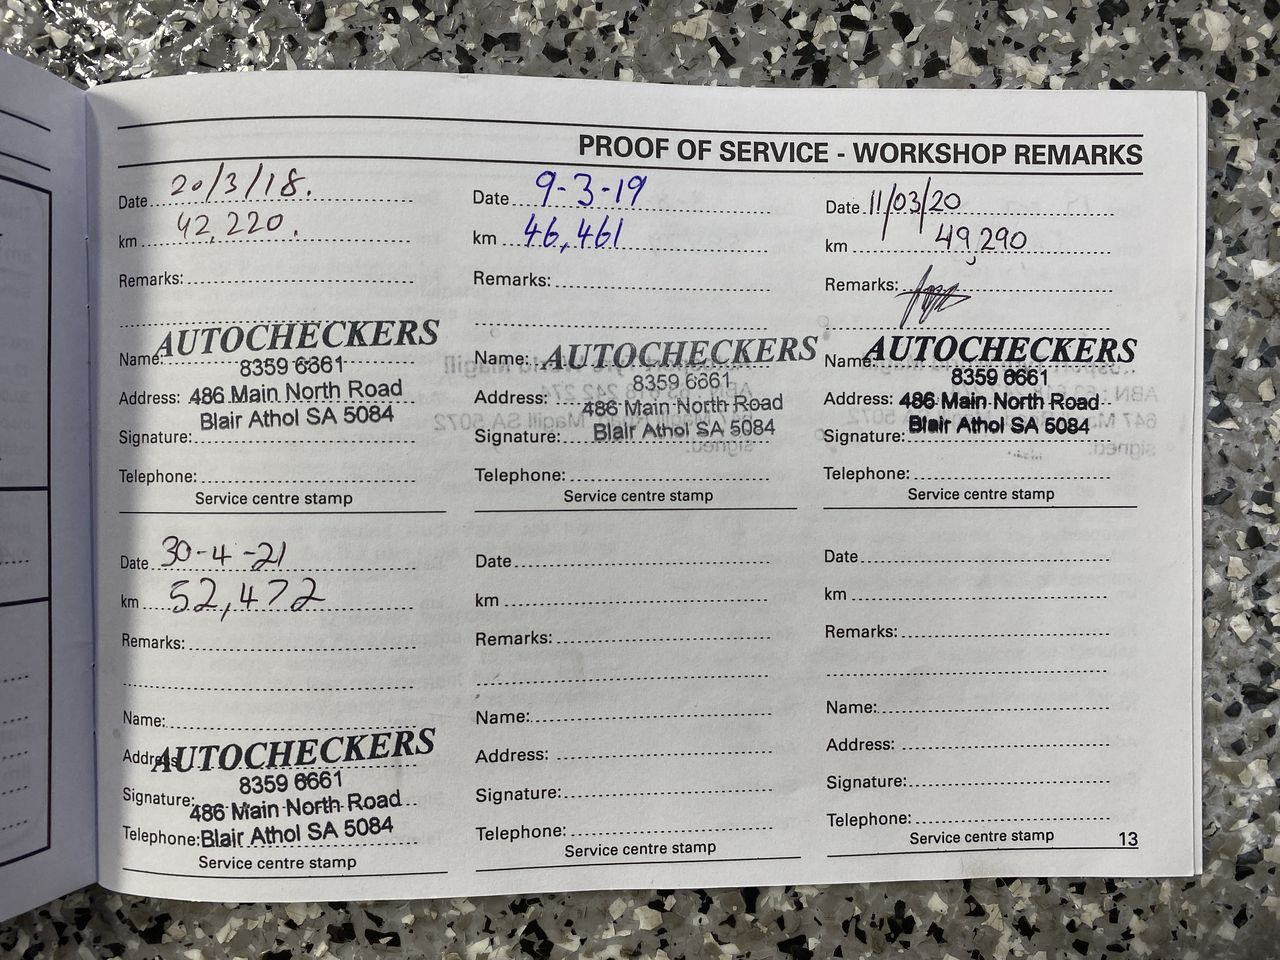 PROOF OF SERVICE - WORKSHOP REMARKS
Date 20/3/18.
km 42,220.
Remarks:
AUTOCHECKERS
Name: 8359 6661
Address: 486 Main North Road
Blair Athol SA 5084
Signature:
Telephone:
Service centre stamp
Date 9-3-19
km 46,461
Remarks:
AUTOCHECKERS
Name: 8359 6661
Address: 486 Main North Road
Blair Athol SA 5084
Signature:
Telephone:
Service centre stamp
Date 11/03/20
km 49,290
Remarks:
AUTOCHECKERS
Name: 8359 6661
Address: 486 Main North Road
Blair Athol SA 5084
Signature:
Telephone:
Service centre stamp
Date 30-4-21
km 52,472
Remarks:
Name:
Address AUTOCHECKERS
8359 6661
Signature: 486 Main North Road
Telephone: Blair Athol SA 5084
Service centre stamp
Date
km
Remarks:
Name:
Address:
Signature:
Telephone:
Service centre stamp
Date
km
Remarks:
Name:
Address:
Signature:
Telephone:
Service centre stamp
13